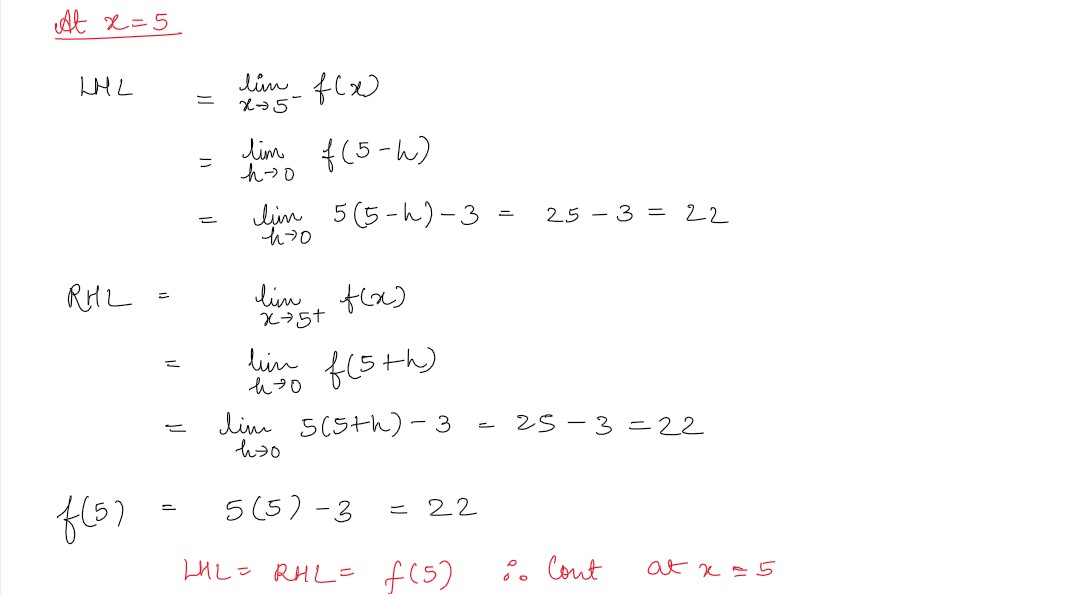 At x=5
LHL = lim x→5⁻ f(x)
= lim h→0 f(5-h)
= lim h→0 5(5-h)-3 = 25-3 = 22
RHL = lim x→5+ f(x)
= lim h→0 f(5+h)
= lim h→0 5(5+h)-3 = 25-3=22
f(5) = 5(5)-3 = 22
LHL= RHL= f(5) ∴ Cont at x=5